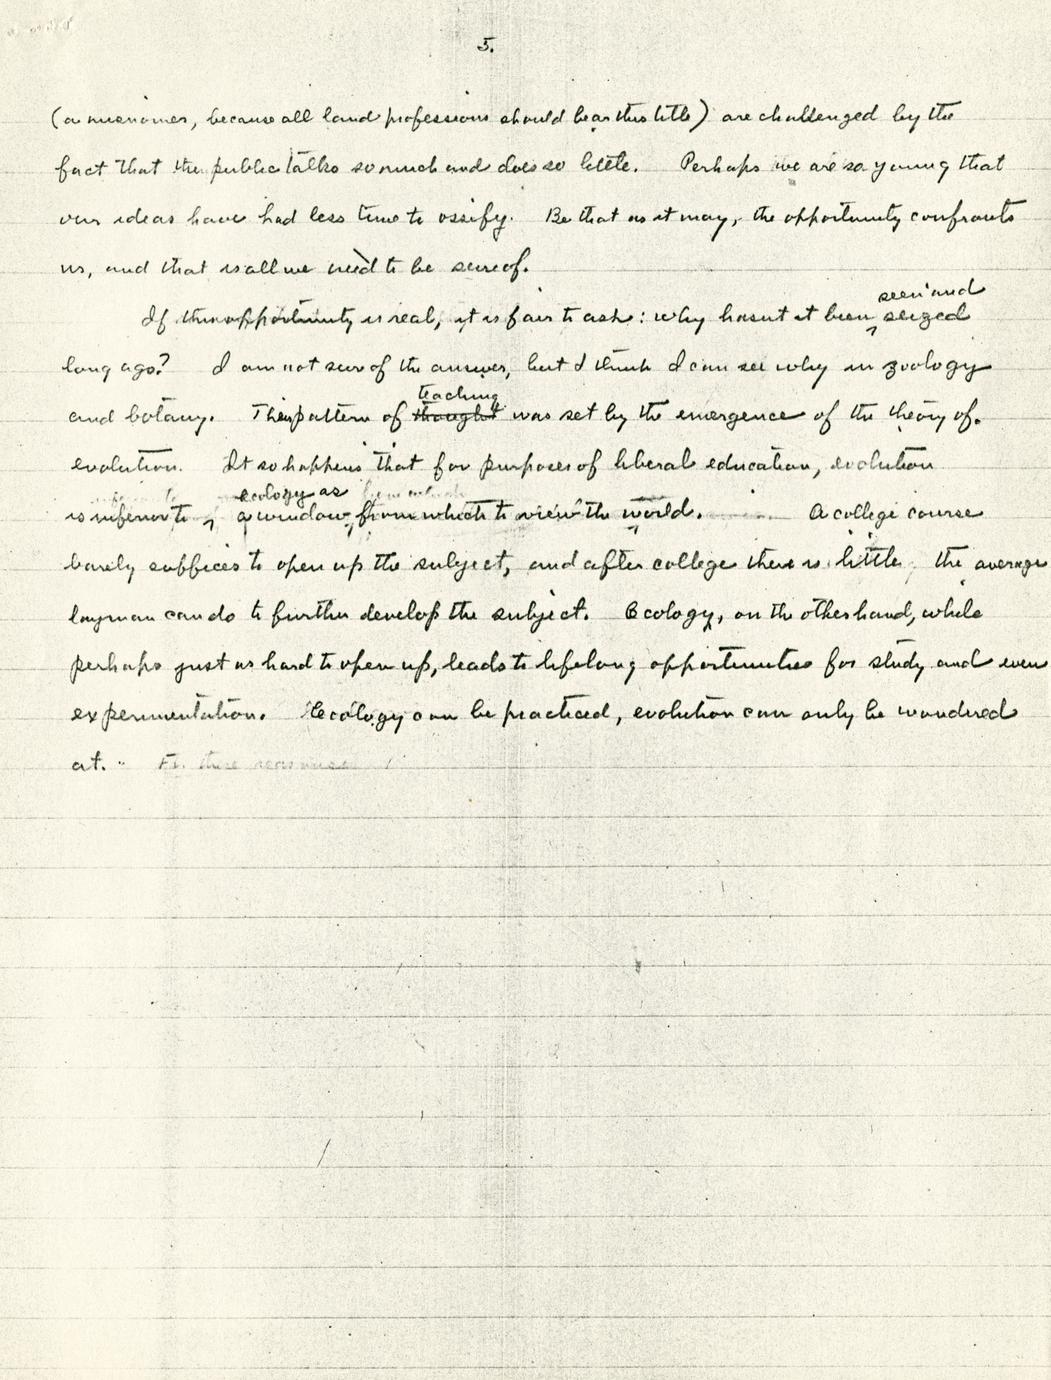 5.
(a misnomer, because all land professions should bear this title) are challenged by the
fact that the public talks so much and does so little. Perhaps we are so young that
our ideas have had less time to ossify. Be that as it may, the opportunity confronts
us, and that is all we need to be sure of.
seen and
If this opportunity is real, it is fair to ask: why hasn't it been seized
long ago? I am not sure of the answer, but I think I can see why in zoology
teaching
and botany. Their pattern of thought was set by the emergence of the theory of
evolution. It so happens that for purposes of liberal education, evolution
ecology as
is inferior to a window from which to view the world. A college course
barely suffices to open up the subject, and after college there is little the average
layman can do to further develop the subject. Ecology, on the other hand, while
perhaps just as hard to open up, leads to lifelong opportunities for study and even
experimentation. Ecology can be practiced, evolution can only be wondered
at.